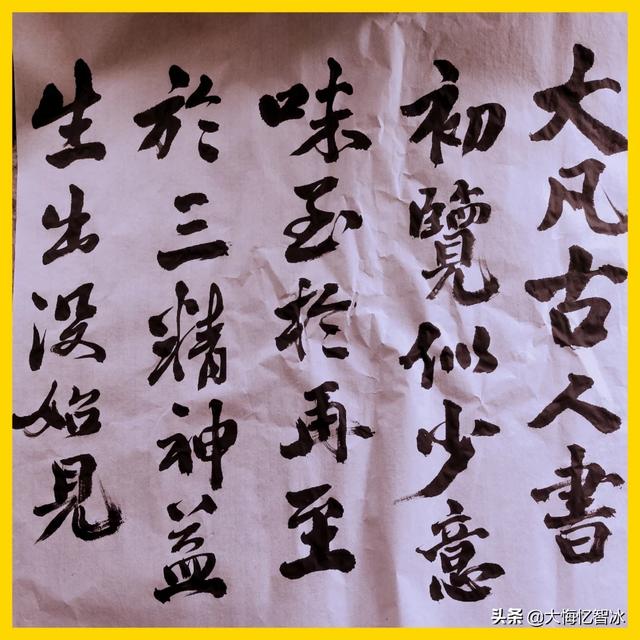 大凡古人書
初覽似少意
味至於再至
於三精神益
生出没始見
头条 @大悔忆智冰